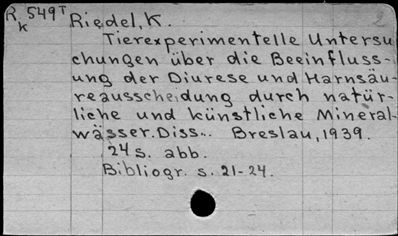 R 549T Riedel, K.
k
Tierexperimentelle Untersu
chungen über die Beeinfluss-
ung der Diurese und Harnsäu-
reausscheidung durch natür-
liche und künstliche Mineral-
wässer. Diss.. Breslau, 1939.
24 s. abb.
Bibliogr. s. 21-24.